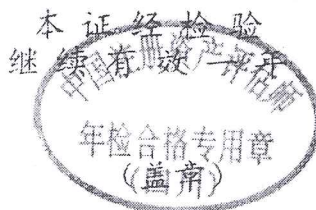 本证经检验
继续有效一年
中国注册资产评估师
年检合格专用章
(盖章)